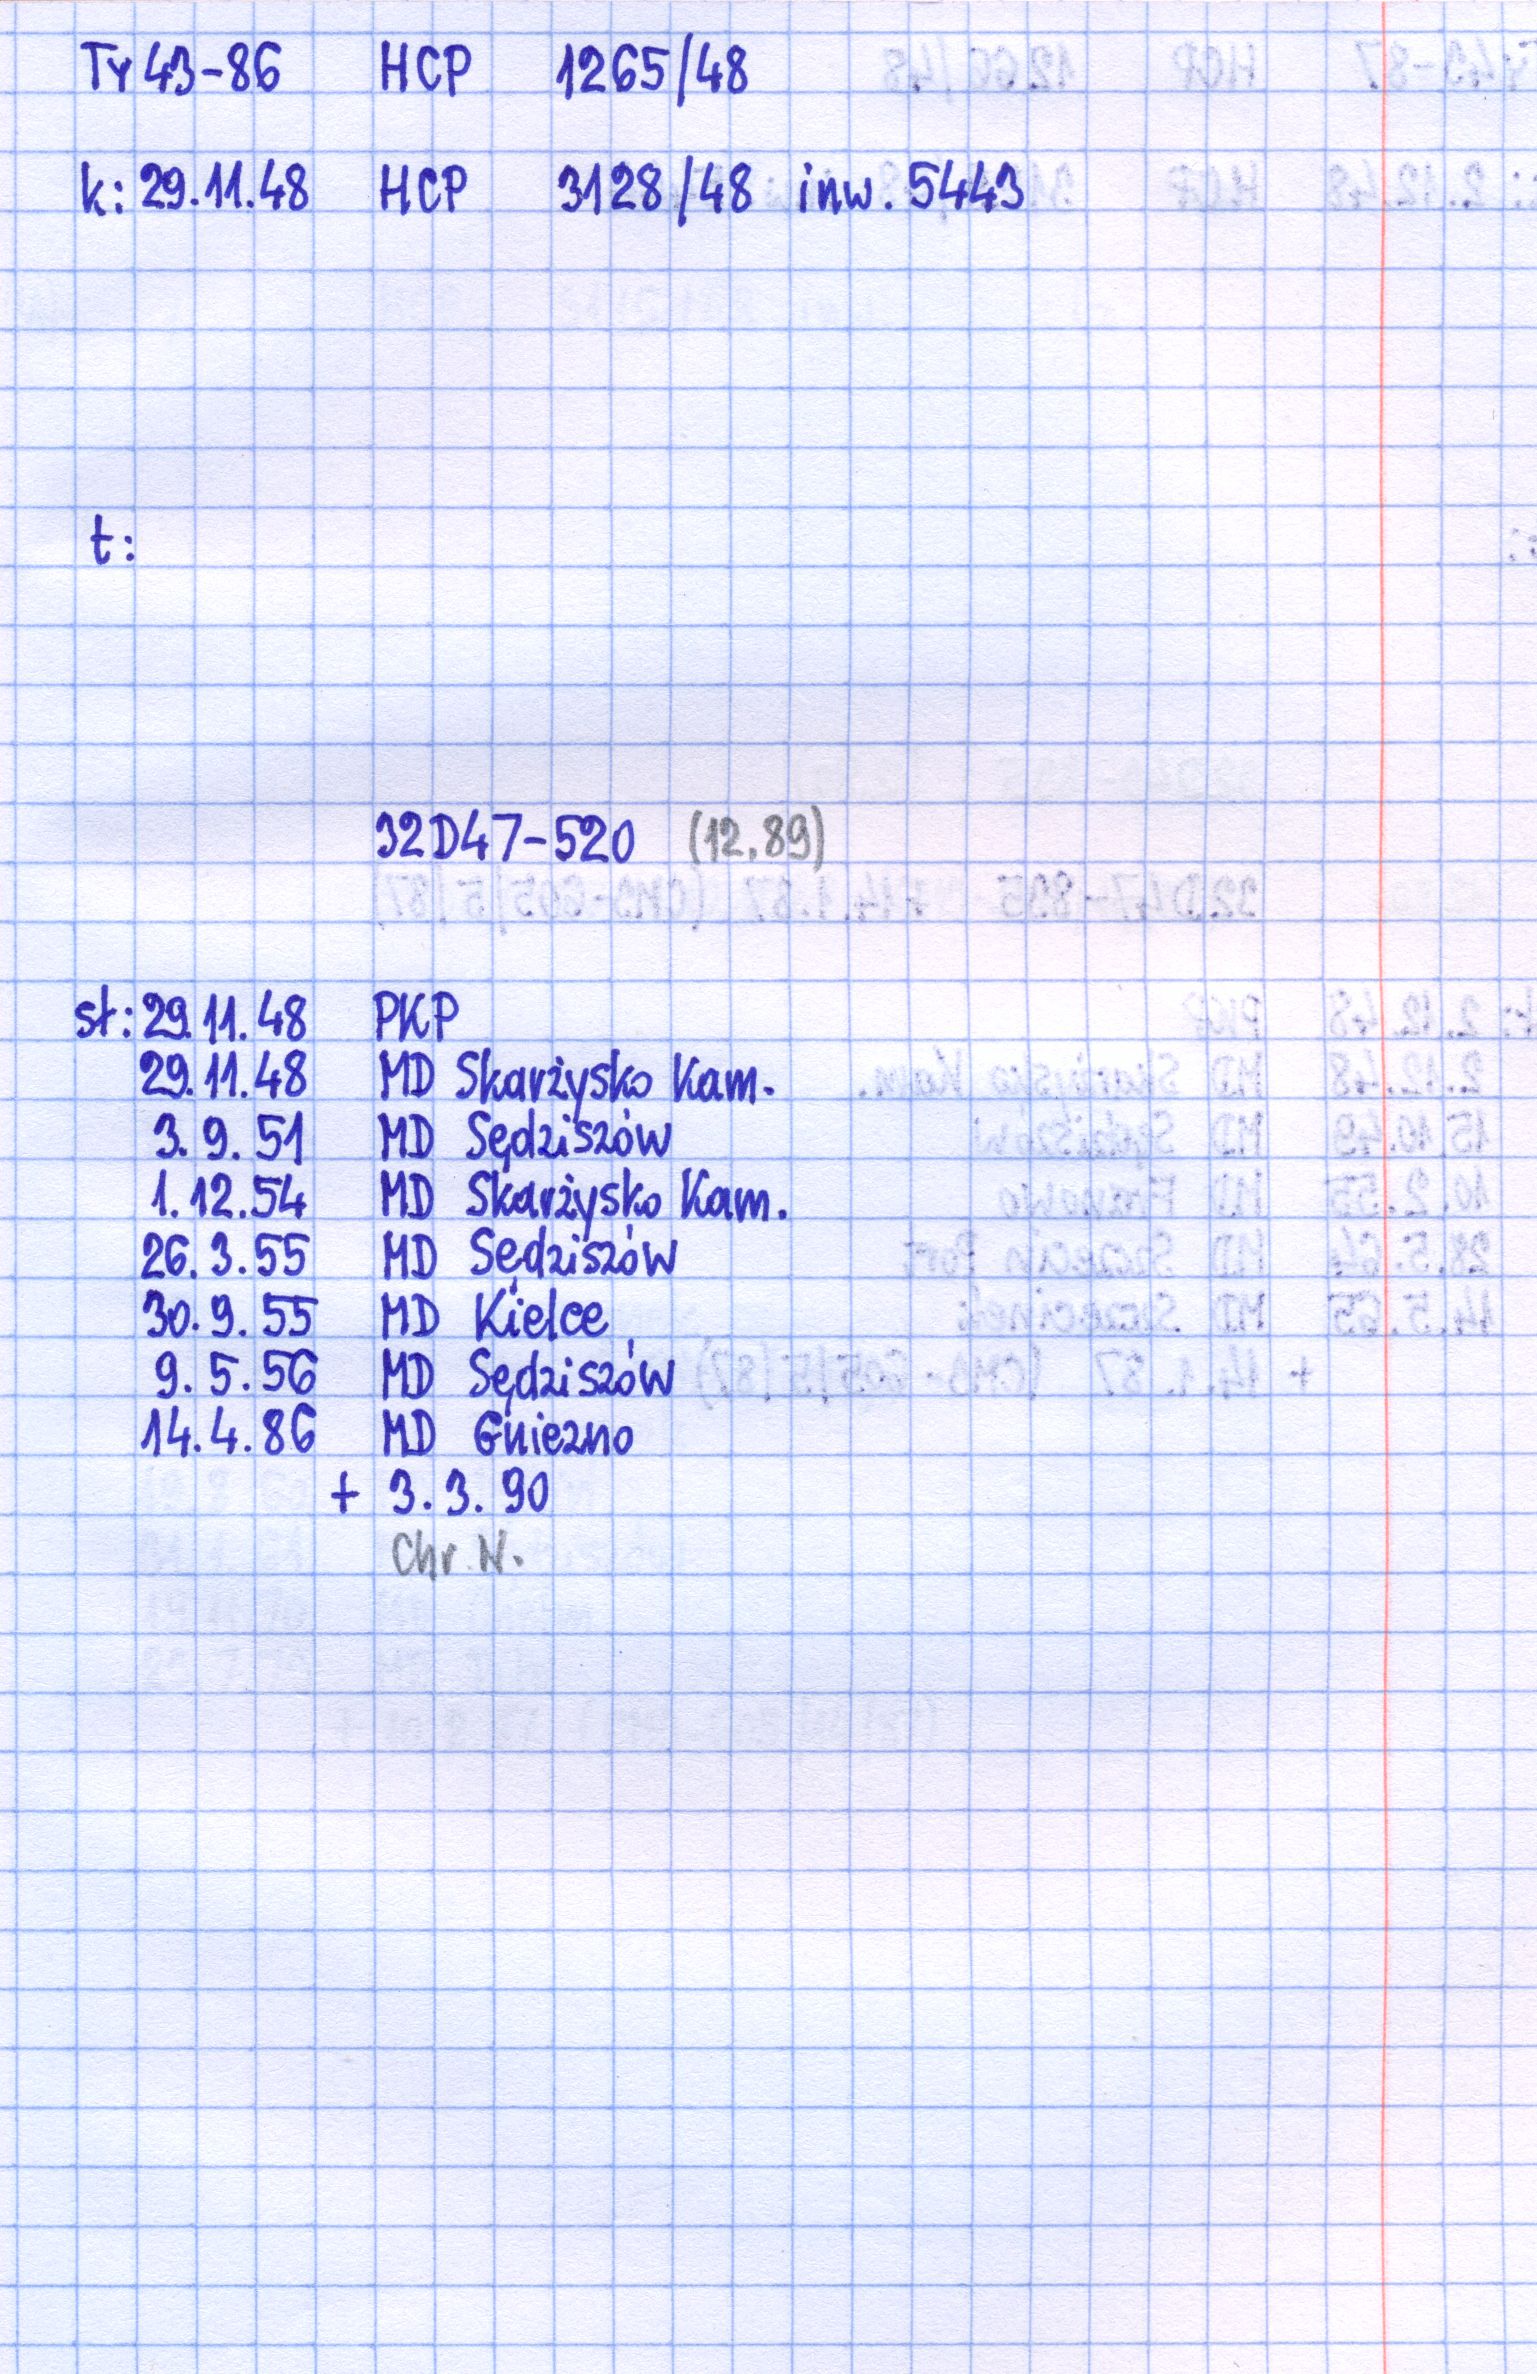 Ty43-86 HCP 1265/48
k: 29.11.48 HCP 3128/48 inw. 5443
t:
32D47-520 (12.89)
st: 29.11.48 PKP
29.11.48 MD Skarżysko Kam.
3.9.51 MD Sędziszów
1.12.54 MD Skarżysko Kam.
26.3.55 MD Sędziszów
30.9.55 MD Kielce
9.5.56 MD Sędziszów
14.4.86 MD Gniezno
+ 3.3.90
Chr. N.